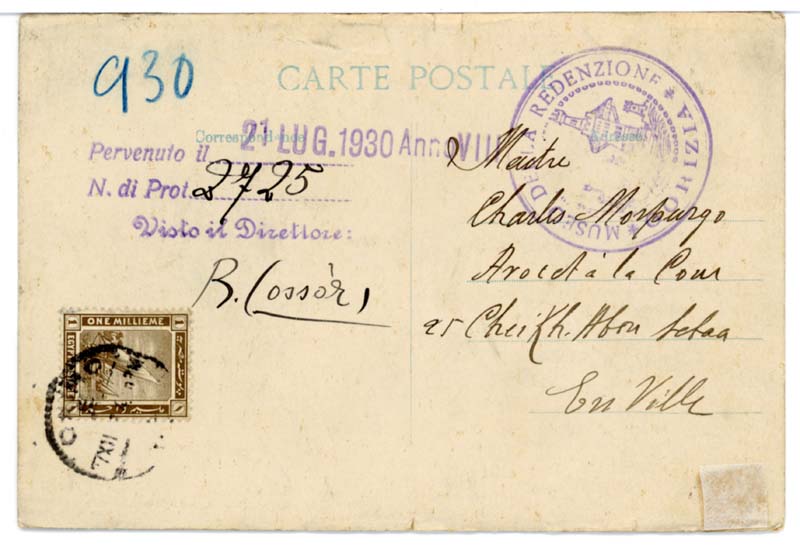 930
CARTE POSTALE
Correspondance
Adresse
MUSEO DELLA REDENZIONE ★ GORIZIA ★
21 LUG. 1930 Anno VIII
Pervenuto il
N. di Prot. 2725
Visto il Direttore:
R. Cossàr
Maitre
Charles Morpurgo
Avocat à la Cour
25 Cheikh. Abou Sebaa
En Ville
1 ONE MILLIEME 1
CAIRO
XII